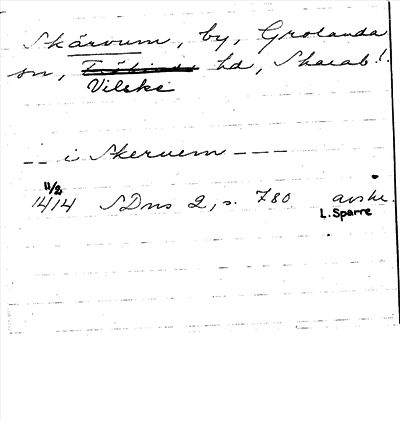 Skärvum, by, Grolanda
sn, Vilske hd, Skarab.l.
-- i Skervem ---
11/2
1414 SDns 2, s. 780 avskr.
L. Sparre